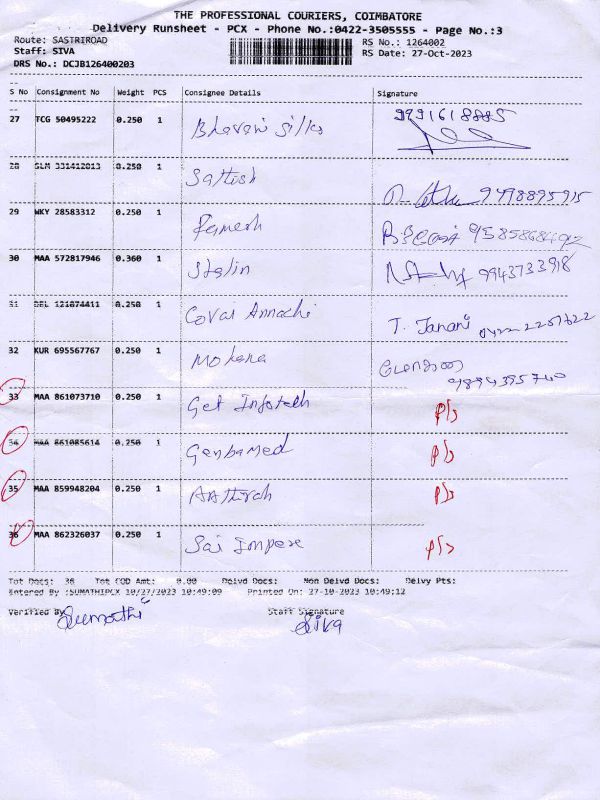 THE PROFESSIONAL COURIERS, COIMBATORE
Delivery Runsheet - PCX - Phone No.:0422-3505555 - Page No.:3
Route: SASTRIROAD RS No.: 1264002
Staff: SIVA RS Date: 27-Oct-2023
DRS No.: DCJB126400203
S No Consignment No Weight PCS Consignee Details Signature
27 TCG 50495222 0.250 1 Bhavani Silks 9991618885
28 SLM 331412013 0.250 1 Sathish 9498895915
29 WKY 28583312 0.250 1 Ramesh
30 MAA 572817946 0.360 1 Stalin 9943733918
31 DEL 121874411 0.250 1 Covai Annachi T. Janani 0422 2257622
32 KUR 695567767 0.250 1 Mohana மோகனா
9894395740
33 MAA 861073710 0.250 1 Get Infotech P/s
34 MAA 861085614 0.250 1 Genbamed P/s
35 MAA 859948204 0.250 1 P/s
36 MAA 862326037 0.250 1 Sai Impex P/s
Tot Docs: 36 Tot COD Amt: 0.00 Delvd Docs: Non Delvd Docs: Delvy Pts:
Entered By :SUMATHIPCX 10/27/2023 10:49:09 Printed On: 27-10-2023 10:49:12
Verified By Staff Signature
Sumathi Siva